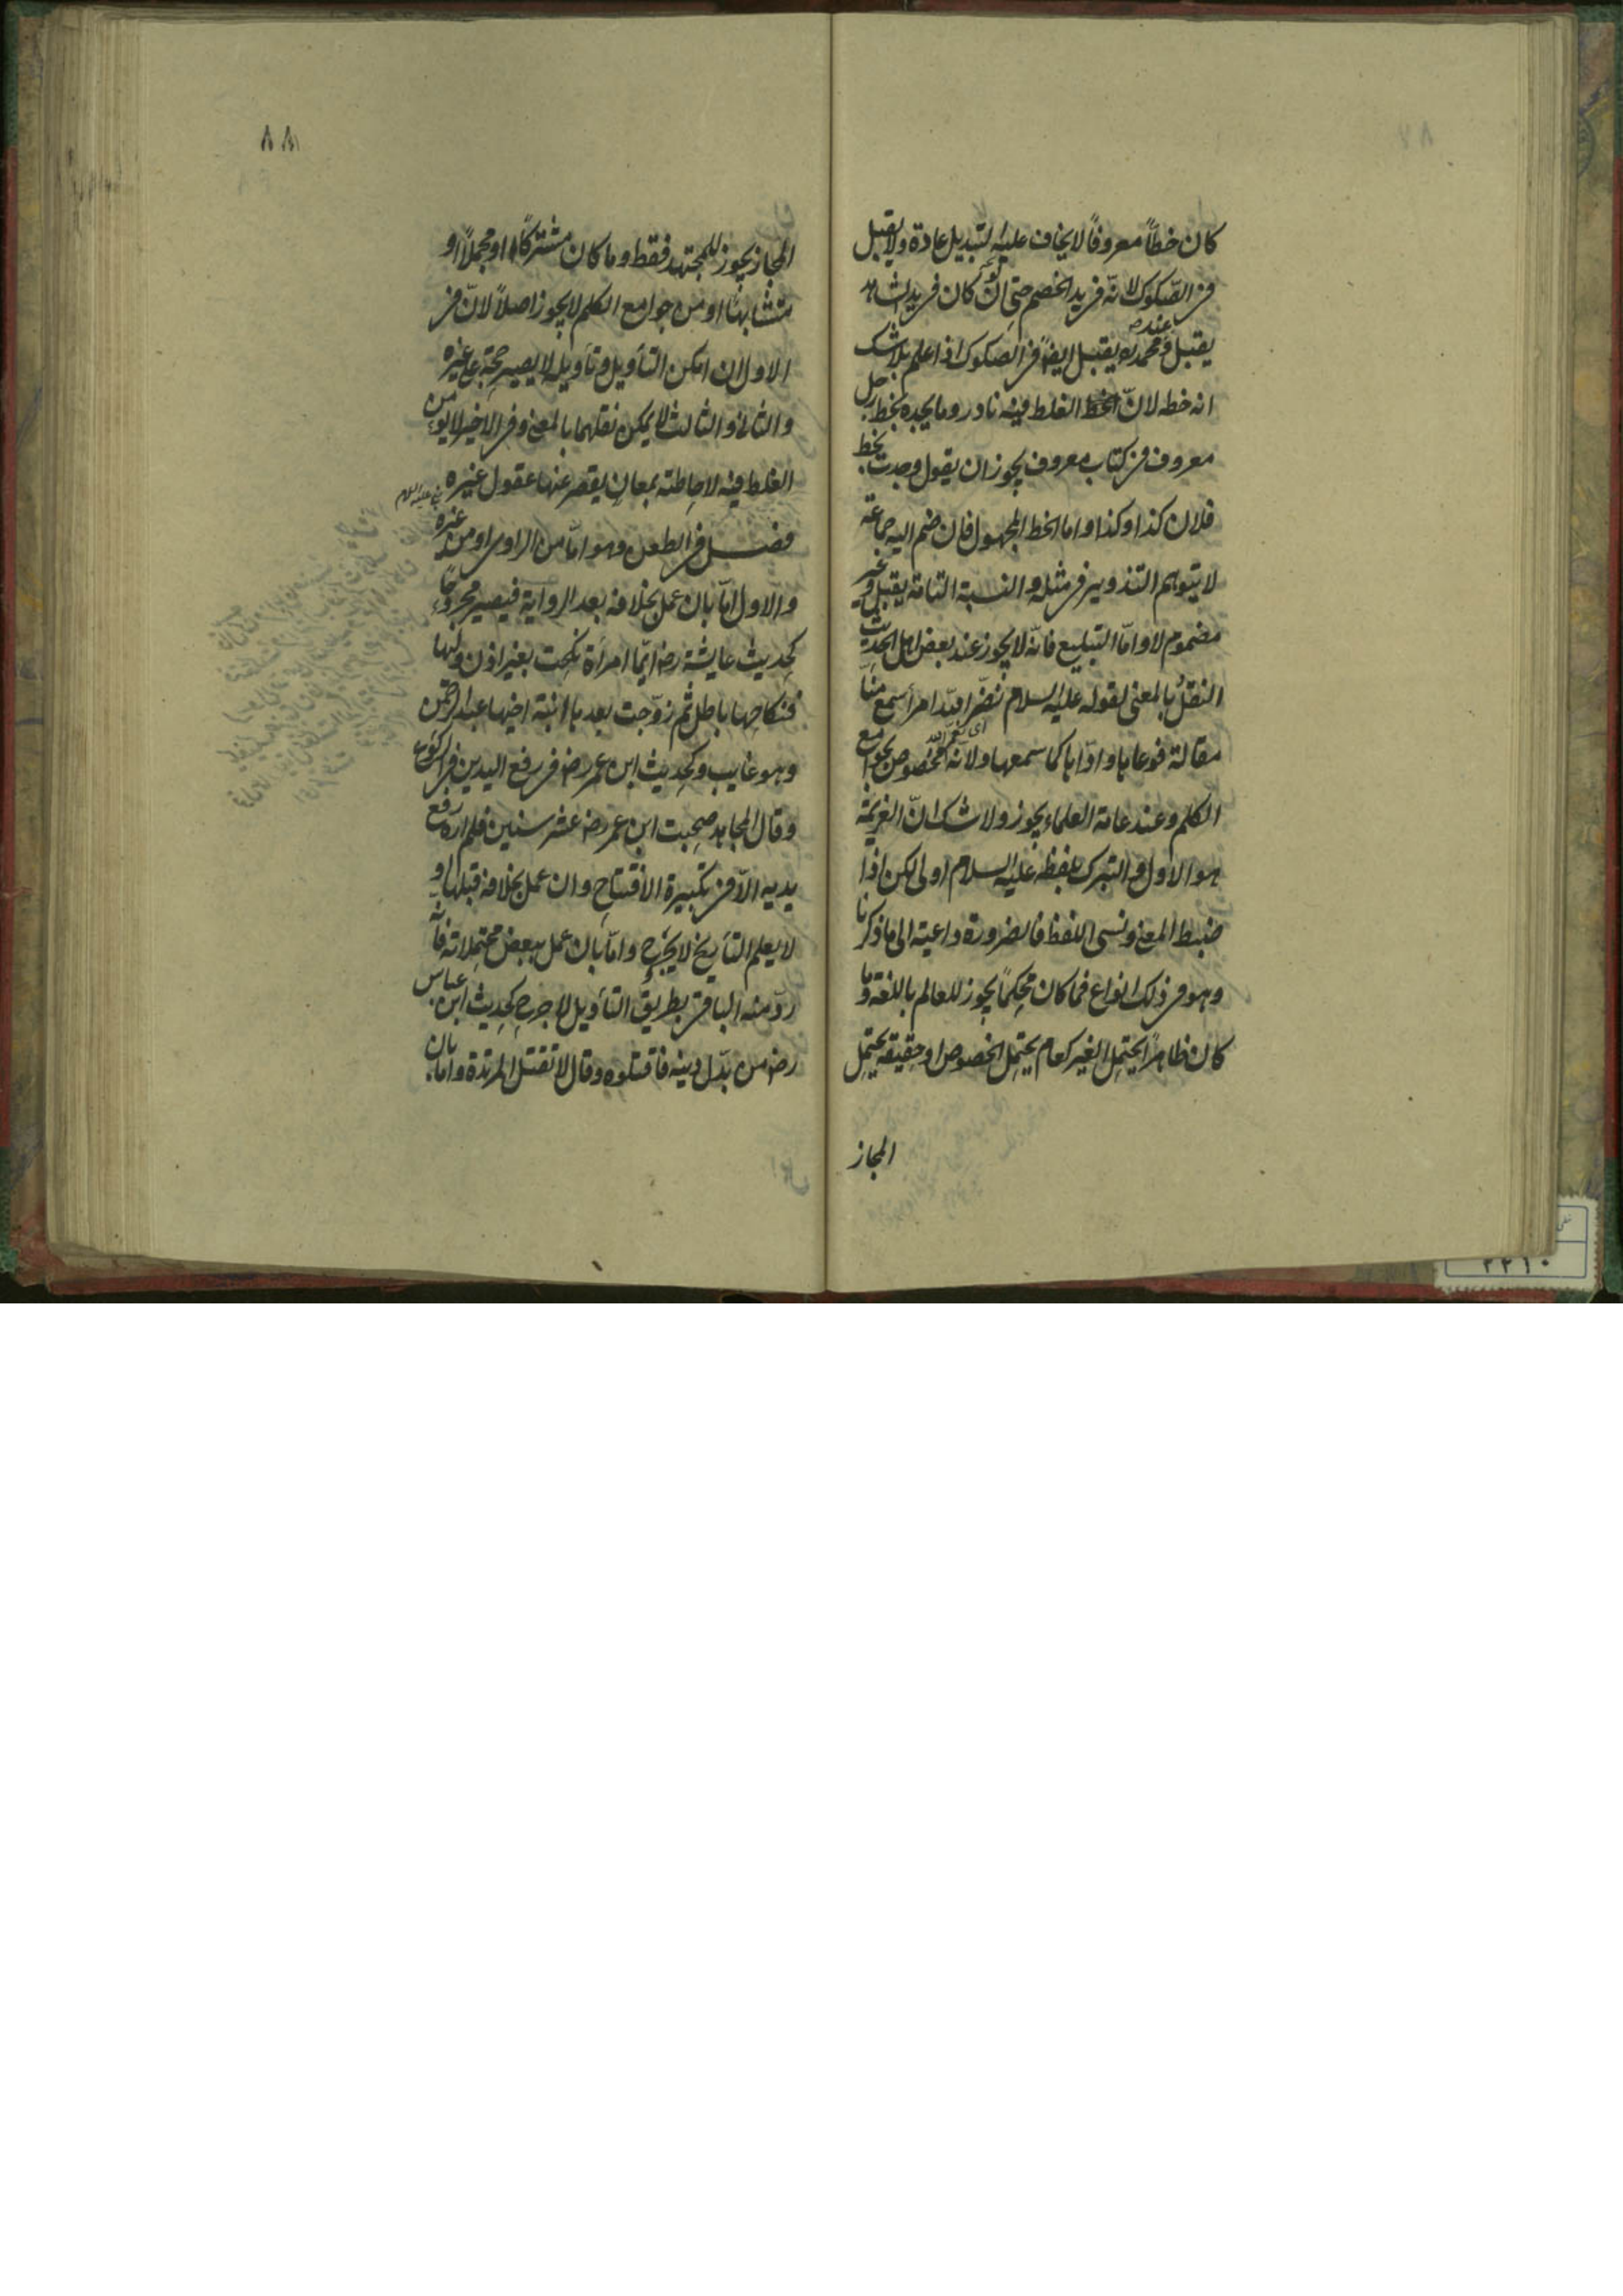 كان خطاً معروفاً لا يخاف عليه التبديل عادة ولا يقبل
فى الصكوك لانه فى يد الخصم حتى ان كان فى يد الشاهد
يقبل وعند محمد ره يقبل ايضاً فى الصكوك اذا علم بلا شك
انه خطه لانّ الغلط فيه نادر وما يجده بخط رجل
معروف فى كتاب معروف يجوز ان يقول وجدت بخط
فلان كذا وكذا واما الخط المجهول فان ضم اليه جماعة
لا يتوهم التزوير فى مثله والنسبة التامة يقبل وغير
مضموم لا واما التبليغ فانه لا يجوز عند بعض اهل الحديث
النقل بالمعنى لقوله عليه السلام نضّر الله امرأ سمع منّا
اى نعّم الله
مقالة فوعاها واداها كما سمعها ولانه مخصوص بجوامع
الكلم وعند عامة العلماء يجوز ولا شك انّ العزيمة
هو الاول والتبرك بلفظه عليه السلام اولى لكن اذا
ضبط المعنى ونسى اللفظ فالضرورة داعية الى ما ذكرنا
وهو فى ذلك انواع فما كان محكماً يجوز للعالم باللغة وما
كان ظاهراً يحتمل الغير كعام يحتمل الخصوص او حقيقة يحتمل
المجاز
٨٨
المجاز يجوز للمجتهد فقط وما كان مشتركاً او مجملاً او
متشابهاً او من جوامع الكلم لا يجوز اصلاً لانّ فى
الاول ان امكن التأويل فتأويله لا يصير حجة على غيره
والثانى والثالث لا يمكن نقلهما بالمعنى وفى الاخير لا يؤمن
الغلط فيه لاحاطته بمعانٍ يقصر عنها عقول غيره
فصل فى الطعن وهو امّا من الراوى او من غيره
والاول امّا بان عمل بخلافه بعد الرواية فيصير مجروحاً
كحديث عايشة رض ايّما امرأة نكحت بغير اذن وليها
فنكاحها باطل ثم زوّجت بعدها ابنة اخيها عبد الرحمن
وهو غايب وكحديث ابن عمر رض فى رفع اليدين فى الركوع
وقال المجاهد صحبت ابن عمر رض عشر سنين فلم اره رفع
يديه الّا فى تكبيرة الافتتاح وان عمل بخلافه قبلها او
لا يعلم التأريخ لا يجرح وامّا بان عمل ببعض محتملاته فانه
ردّ منه الباقى بطريق التأويل لا جرح كحديث ابن عباس
رض من بدّل دينه فاقتلوه وقال لا تقتل المرتدة واما بان